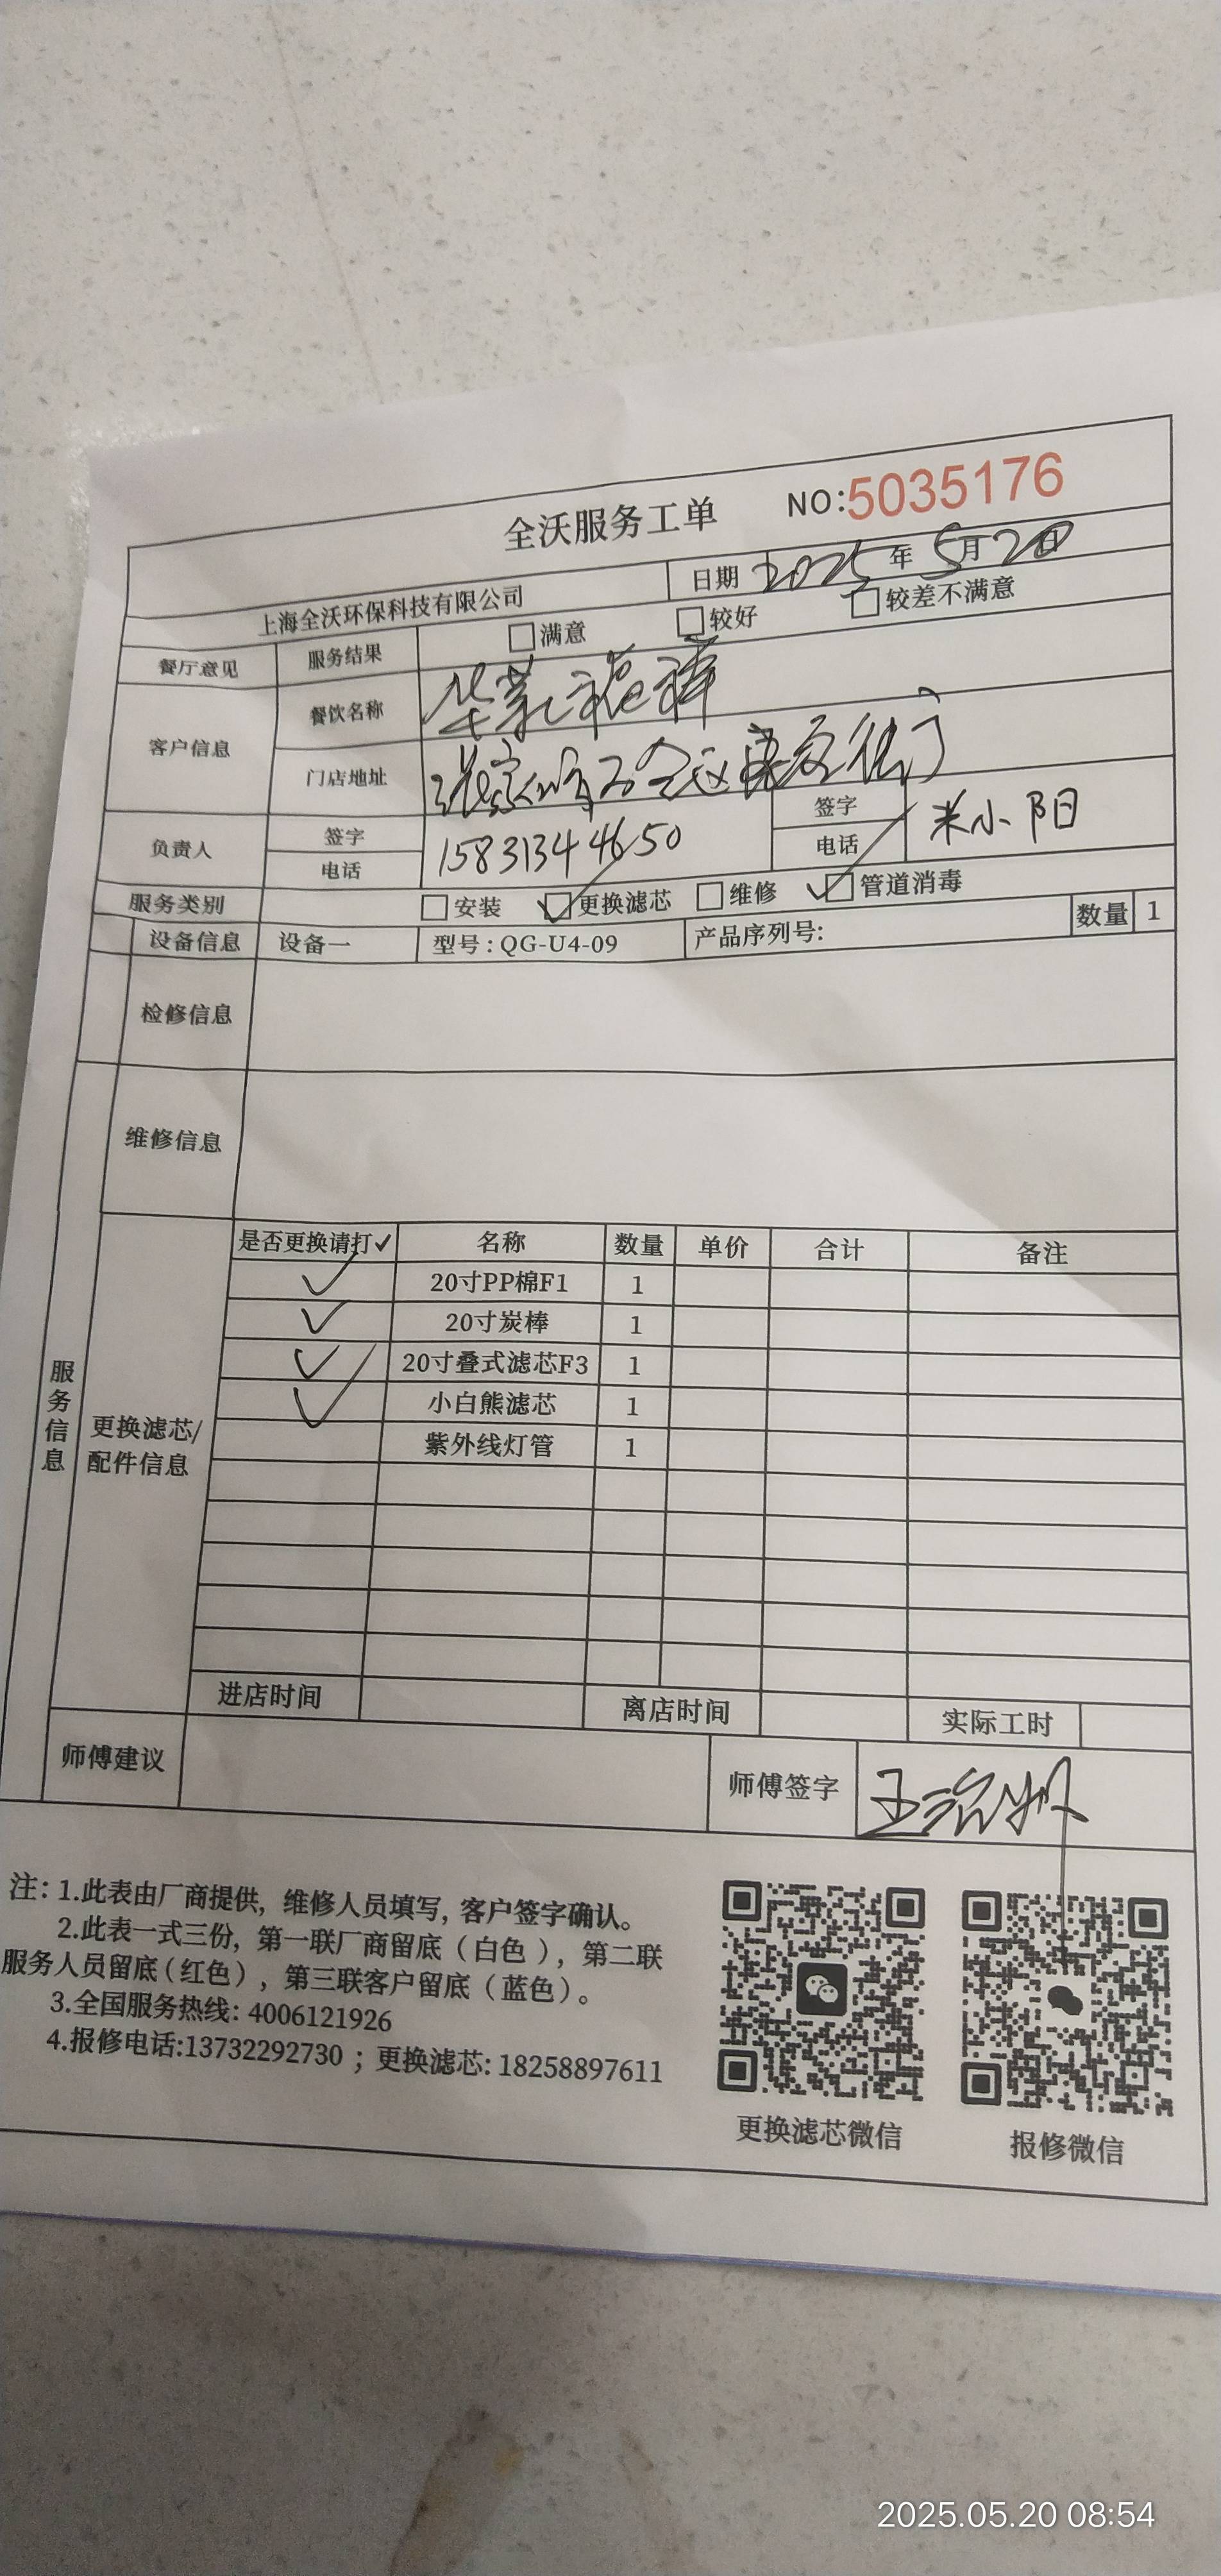 全沃服务工单 NO:5035176
上海全沃环保科技有限公司 日期 2025年5月20日
餐厅意见 服务结果 □满意 □较好 □较差不满意
客户信息 餐饮名称
门店地址
负责人 签字 签字 米小阳
电话 15831344650 电话
服务类别 □安装 ☑更换滤芯 □维修 ☑管道消毒
设备信息 设备一 型号:QG-U4-09 产品序列号: 数量 1
检修信息
维修信息
服务信息
更换滤芯/
配件信息
是否更换请打✓ 名称 数量 单价 合计 备注
✓ 20寸PP棉F1 1
✓ 20寸炭棒 1
✓ 20寸叠式滤芯F3 1
✓ 小白熊滤芯 1
紫外线灯管 1
进店时间 离店时间 实际工时
师傅建议 师傅签字
注:1.此表由厂商提供,维修人员填写,客户签字确认。
2.此表一式三份,第一联厂商留底(白色),第二联
服务人员留底(红色),第三联客户留底(蓝色)。
3.全国服务热线:4006121926
4.报修电话:13732292730;更换滤芯:18258897611
更换滤芯微信 报修微信
2025.05.20 08:54